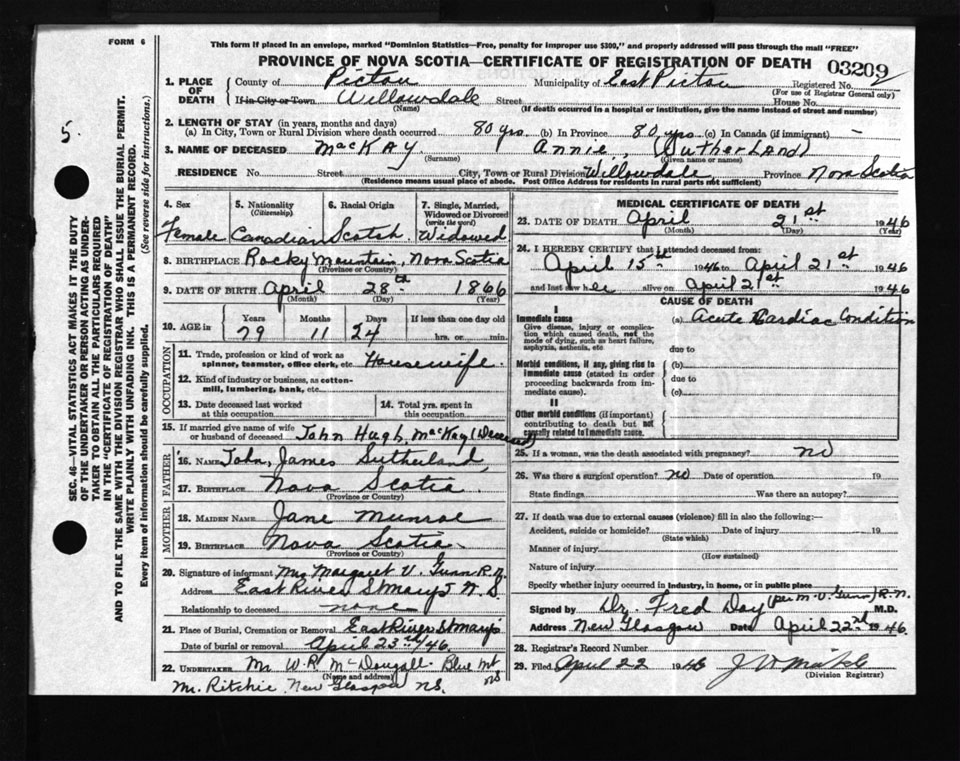 FORM 6
This form if placed in an envelope, marked "Dominion Statistics—Free, penalty for improper use $300," and properly addressed will pass through the mail "FREE"
PROVINCE OF NOVA SCOTIA—CERTIFICATE OF REGISTRATION OF DEATH 03209
5.
SEC. 46—VITAL STATISTICS ACT MAKES IT THE DUTY
OF THE UNDERTAKER OR PERSON ACTING AS UNDER-
TAKER TO OBTAIN ALL THE PARTICULARS REQUIRED
IN THE "CERTIFICATE OF REGISTRATION OF DEATH"
AND TO FILE THE SAME WITH THE DIVISION REGISTRAR WHO SHALL ISSUE THE BURIAL PERMIT.
WRITE PLAINLY WITH UNFADING INK. THIS IS A PERMANENT RECORD.
Every item of information should be carefully supplied. (See reverse side for instructions.)
1. PLACE OF DEATH
County of Pictou Municipality of East Pictou Registered No.
(For use of Registrar General only)
If in City or Town Willowdale Street House No.
(Name) (If death occurred in a hospital or institution, give the name instead of street and number)
2. LENGTH OF STAY (in years, months and days)
(a) In City, Town or Rural Division where death occurred 80 yrs. (b) In Province 80 yrs (c) In Canada (if immigrant) –
3. NAME OF DECEASED MacKAY Annie, (Sutherland)
(Surname) (Given name or names)
RESIDENCE No. Street City, Town or Rural Division Willowdale Province Nova Scotia
(Residence means usual place of abode. Post Office Address for residents in rural parts not sufficient)
4. Sex 5. Nationality (Citizenship) 6. Racial Origin 7. Single, Married, Widowed or Divorced (write the word)
Female Canadian Scotch Widowed
8. BIRTHPLACE Rocky Mountain, Nova Scotia
(Province or Country)
9. DATE OF BIRTH April 28th 1866
(Month) (Day) (Year)
10. AGE in Years Months Days If less than one day old
79 11 24 hrs. or min.
OCCUPATION
11. Trade, profession or kind of work as
spinner, teamster, office clerk, etc. Housewife.
12. Kind of industry or business, as cotton-
mill, lumbering, bank, etc.
13. Date deceased last worked
at this occupation
14. Total yrs. spent in
this occupation
15. If married give name of wife
or husband of deceased John Hugh MacKay (Deceased)
FATHER
16. NAME John James Sutherland
17. BIRTHPLACE Nova Scotia.
(Province or Country)
MOTHER
18. MAIDEN NAME Jane Munroe
19. BIRTHPLACE Nova Scotia.
(Province or Country)
20. Signature of informant Mrs Margaret V. Gunn R.N.
Address East River St Marys N.S.
Relationship to deceased none
21. Place of Burial, Cremation or Removal East River St Marys
Date of burial or removal April 23rd/46.
22. UNDERTAKER Mr W.R. McDougall. Blue Mt
(Name and address) NS
Mr. Ritchie, New Glasgow NS.
MEDICAL CERTIFICATE OF DEATH
23. DATE OF DEATH April 21st 1946
(Month) (Day) (Year)
24. I HEREBY CERTIFY that I attended deceased from:
April 15th 1946 to April 21st 1946
and last saw her alive on April 21st 1946
CAUSE OF DEATH
I
Immediate cause (a) Acute Cardiac Condition
Give disease, injury or complica-
tion which caused death, not the
mode of dying, such as heart failure,
asphyxia, asthenia, etc due to
Morbid conditions, if any, giving rise to (b)
immediate cause (stated in order
proceeding backwards from im-
mediate cause).
due to
(c)
II
Other morbid conditions (if important)
contributing to death but not
causally related to immediate cause.
25. If a woman, was the death associated with pregnancy? no
26. Was there a surgical operation? no Date of operation 19
State findings Was there an autopsy?
27. If death was due to external causes (violence) fill in also the following:—
Accident, suicide or homicide? Date of injury 19
(State which)
Manner of injury
(How sustained)
Nature of injury
Specify whether injury occurred in industry, in home, or in public place
Signed by Dr. Fred Day (per M.V. Gunn) R.N. M.D.
Address New Glasgow Date April 22nd 1946.
28. Registrar's Record Number
29. Filed April 22 1946
(Division Registrar)